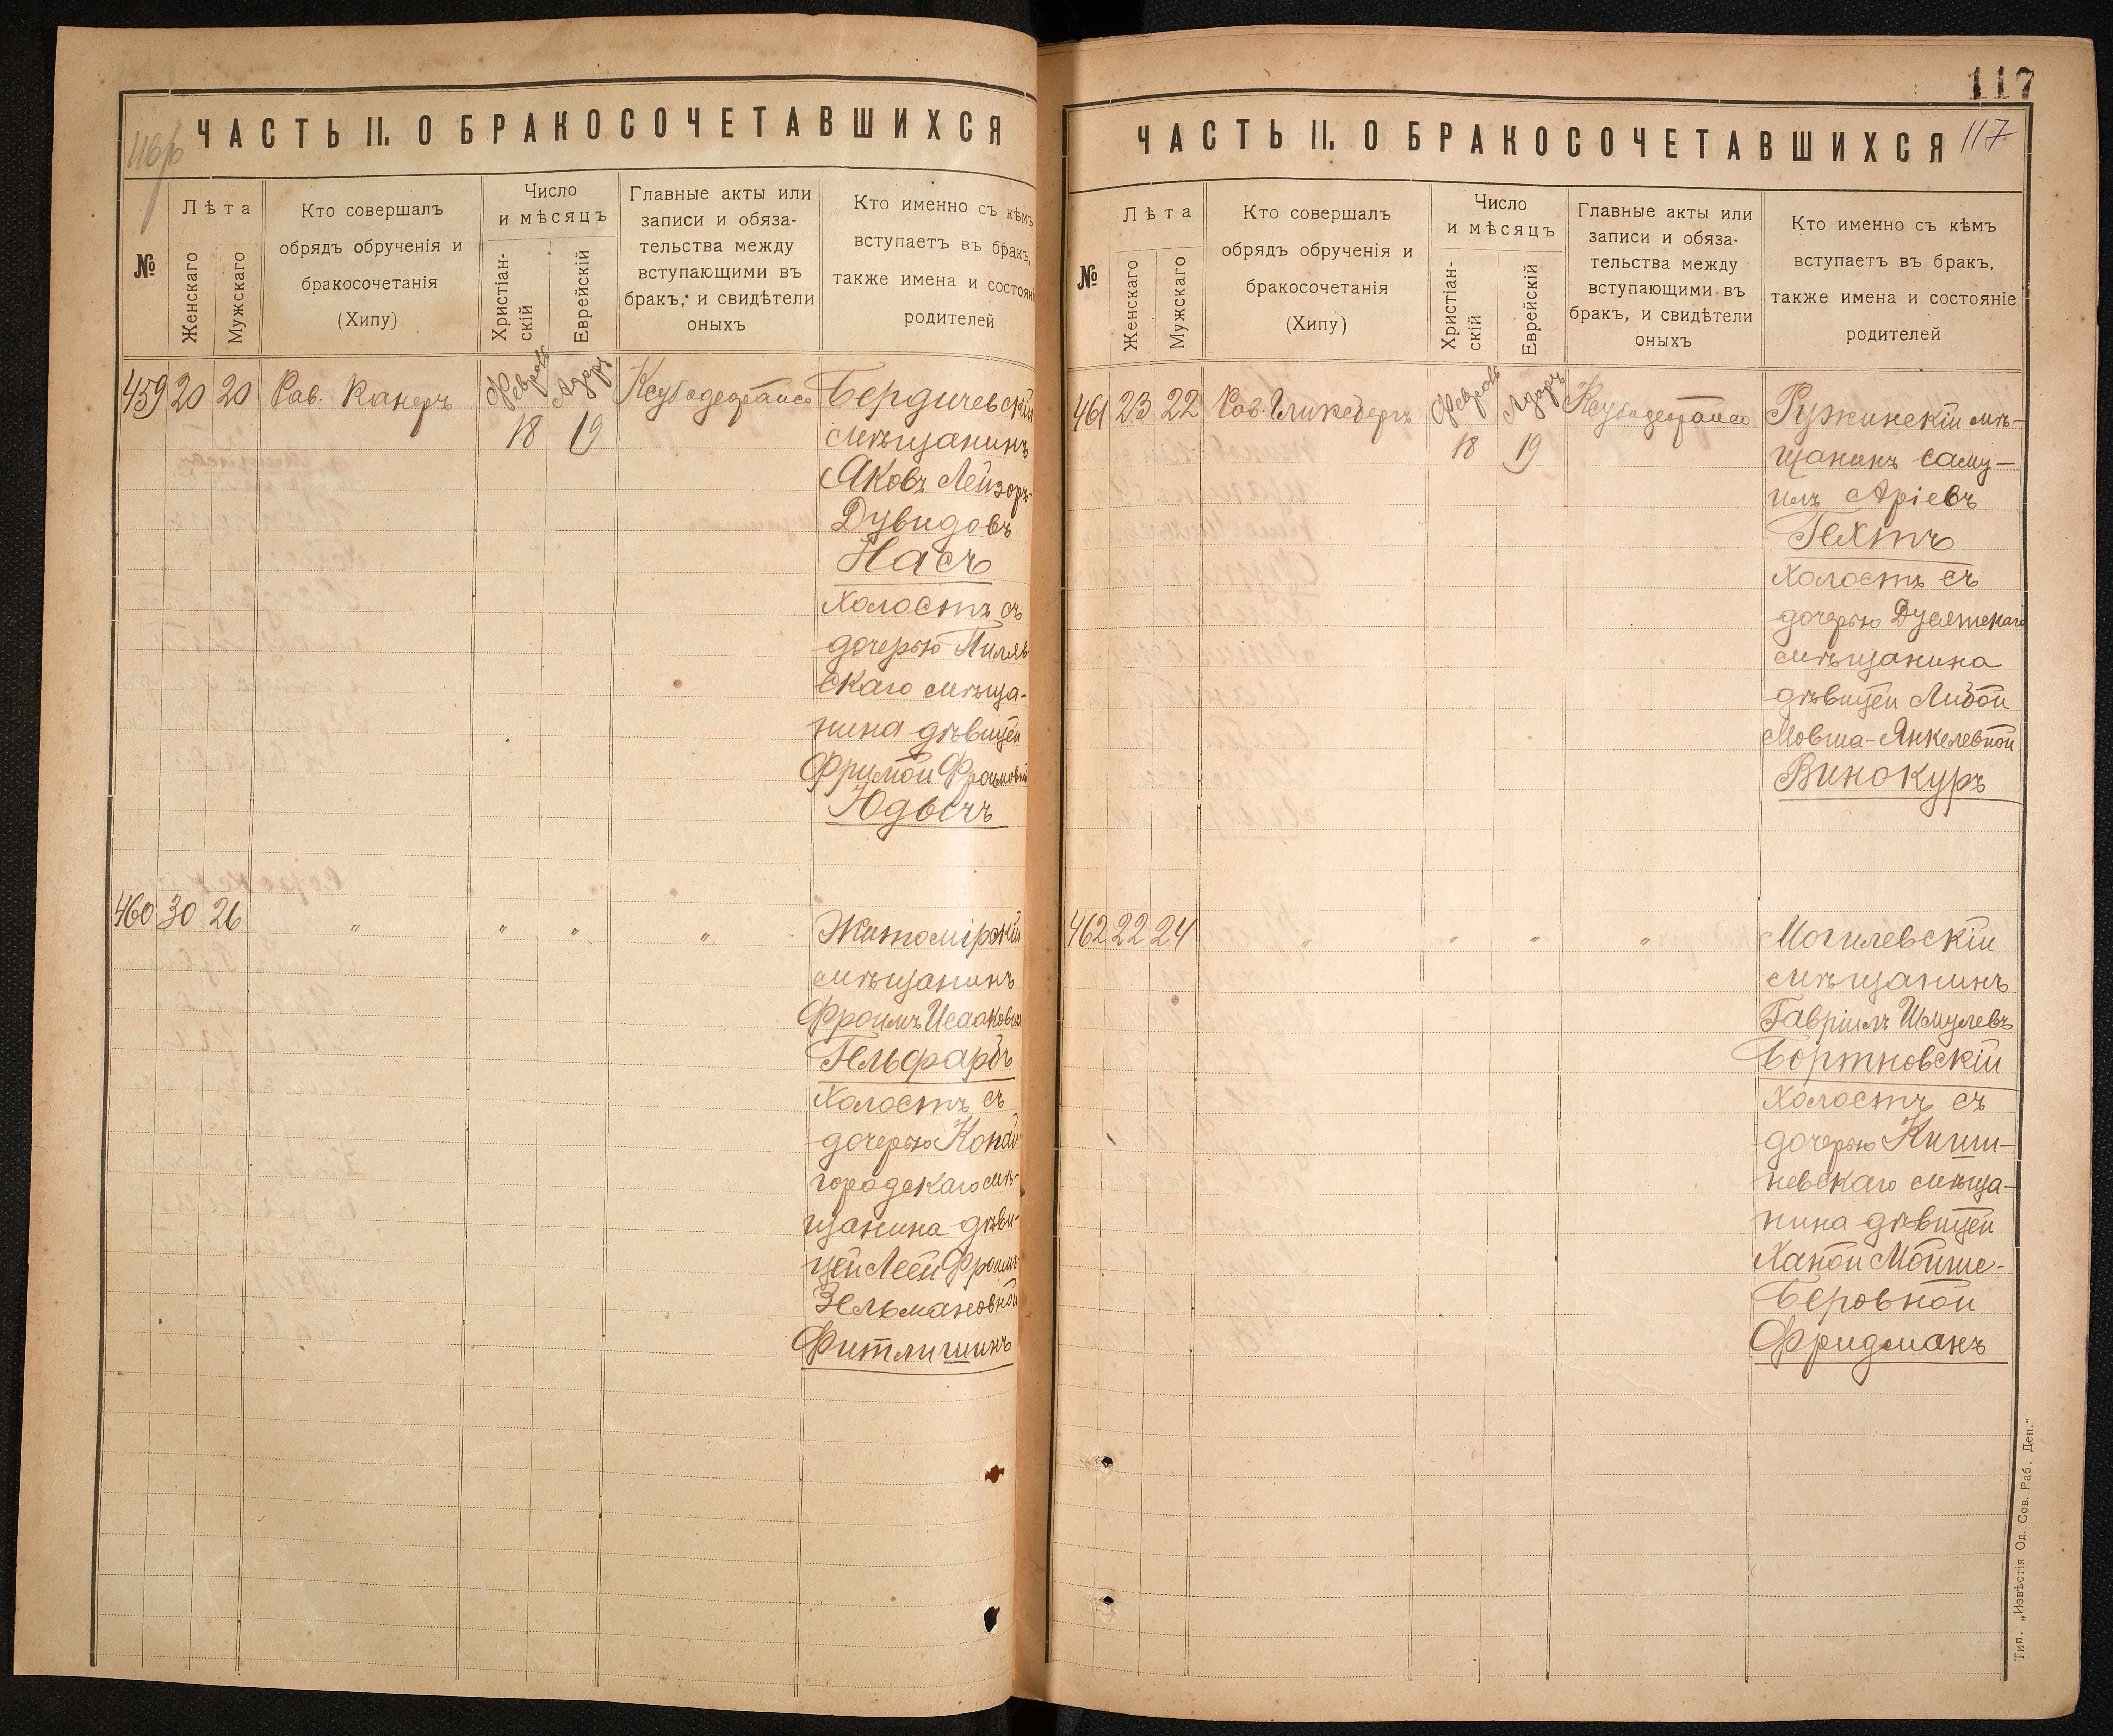 116/б
ЧАСТЬ II. О БРАКОСОЧЕТАВШИХСЯ
№
Лѣта
Женскаго
Мужскаго
Кто совершалъ
обрядъ обрученія и
бракосочетанія
(Хипу)
Число
и мѣсяцъ
Христіан-
скій
Еврейскій
Главные акты или
записи и обяза-
тельства между
вступающими въ
бракъ, и свидѣтели
оныхъ
Кто именно съ кѣмъ
вступаетъ въ бракъ,
также имена и состояні
родителей
459 20 20 Рав. Канеръ
Февраль
18
Адаръ
19
Бердичевскій
мѣщанинъ
Яковъ Лейзоръ-
Дувидовъ
Насъ
холостъ съ
дочерью Пиляв
скаго мѣща-
нина дѣвицей
Фримой Фроимовной
Юдысъ
460 30 26 " " " "
Житомірскій
мѣщанинъ
Фроимъ Исааковъ
Гельфарбъ
холостъ съ
дочерью Копай
городскаго мѣ-
щанина дѣви-
цей Леей Фроимъ-
Зельмановной
Фитлишинъ
117
ЧАСТЬ II. О БРАКОСОЧЕТАВШИХСЯ 117
№
Лѣта
Женскаго
Мужскаго
Кто совершалъ
обрядъ обрученія и
бракосочетанія
(Хипу)
Число
и мѣсяцъ
Христіан-
скій
Еврейскій
Главные акты или
записи и обяза-
тельства между
вступающими въ
бракъ, и свидѣтели
оныхъ
Кто именно съ кѣмъ
вступаетъ въ бракъ,
также имена и состояніе
родителей
461 23 22 Рав. Гликсбергъ
Февраль
18
Адаръ
19
Ружинскій мѣ-
щанинъ Саму-
илъ Аріевъ
Гехтъ
холостъ съ
дочерью Дусятскаго
мѣщанина
дѣвицей Либой
Мовша-Янкелевной
Винокуръ
462 22 24 " " " "
Могилевскій
мѣщанинъ
Гавріилъ Шмулевъ
Бортновскій
холостъ съ
дочерью Киши-
невскаго мѣща-
нина дѣвицей
Ханой Мойше-
Беровной
Фридманъ
Тип. „Извѣстія Од. Сов. Раб. Деп.“